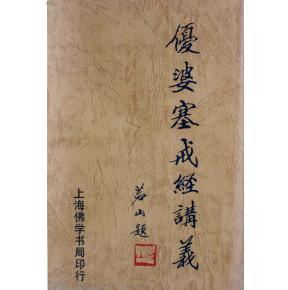 優婆塞戒經講義
茗山題
上海佛学书局印行